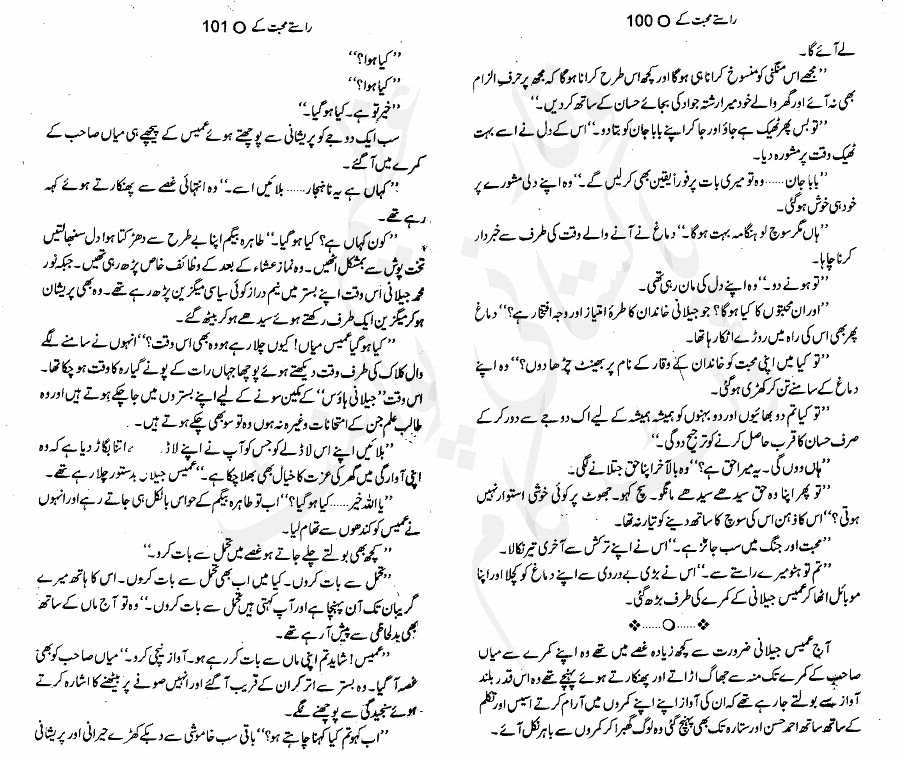 راستے محبت کے O 100
لے آئے گا۔
’’مجھے اس منگنی کو منسوخ کرانا ہی ہوگا اور کچھ اس طرح کرانا ہوگا کہ مجھ پر حرفِ الزام
بھی نہ آئے اور گھر والے خود میرا رشتہ جواد کی بجائے حسان کے ساتھ کر دیں۔‘‘
’’تو بس پھر ٹھیک ہے جاؤ اور جا کر اپنے بابا جان کو بتا دو۔‘‘ اس کے دل نے اسے بہت
ٹھیک وقت پر مشورہ دیا۔
’’بابا جان...... وہ تو میری بات پر فوراً یقین بھی کر لیں گے۔‘‘ وہ اپنے دلی مشورے پر
خود ہی خوش ہو گئی۔
’’ہاں مگر سوچ لو ہنگامہ بہت ہوگا۔‘‘ دماغ نے آنے والے وقت کی طرف سے خبردار
کرنا چاہا۔
’’تو ہونے دو۔‘‘ وہ اپنے دل کی مان رہی تھی۔
’’اور ان محبتوں کا کیا ہوگا؟ جو جیلانی خاندان کا طرۂ امتیاز اور وجہ افتخار ہے؟‘‘ دماغ
پھر بھی اس کی راہ میں روڑے اٹکا رہا تھا۔
’’تو کیا میں اپنی محبت کو خاندان کے وقار کے نام پر بھینٹ چڑھا دوں؟‘‘ وہ اپنے
دماغ کے سامنے تن کر کھڑی ہو گئی۔
’’تو کیا تم دو بھائیوں اور دو بہنوں کو ہمیشہ ہمیشہ کے لیے اک دوجے سے دور کر کے
صرف حسان کا قرب حاصل کرنے کو ترجیح دو گی۔‘‘
’’ہاں دوں گی۔ یہ میرا حق ہے؟‘‘ وہ بالآخر اپنا حق جتلانے لگی۔
’’تو پھر اپنا وہ حق سیدھے سیدھے مانگو۔ سچ کہو۔ جھوٹ پر کوئی خوشی استوار نہیں
ہوتی؟‘‘ اس کا ذہن اس کی سوچ کا ساتھ دینے کو تیار نہ تھا۔
’’محبت اور جنگ میں سب جائز ہے۔‘‘ اس نے اپنے ترکش سے آخری تیر نکالا۔
’’تم تو ہٹو میرے راستے سے۔‘‘ اس نے بڑی بے دردی سے اپنے دماغ کو کچلا اور اپنا
موبائل اٹھا کر عمیس جیلانی کے کمرے کی طرف بڑھ گئی۔
❖......O......❖
آج عمیس جیلانی ضرورت سے کچھ زیادہ غصے میں تھے وہ اپنے کمرے سے میاں
صاحب کے کمرے تک منہ سے جھاگ اڑاتے اور پھنکارتے ہوئے پہنچے تھے وہ اس قدر بلند
آواز سے بولتے جا رہے تھے کہ ان کی آواز اپنے اپنے کمروں میں آرام کرتے انیس اور تکلم
کے ساتھ ساتھ احمد حسن اور ستارہ تک بھی پہنچ گئی وہ لوگ گھبرا کر کمروں سے باہر نکل آئے۔
راستے محبت کے O 101
’’کیا ہوا؟‘‘
’’کیا ہوا؟‘‘
’’خیر تو ہے۔ کیا ہو گیا۔‘‘
سب ایک دوجے کو پریشانی سے پوچھتے ہوئے عمیس کے پیچھے ہی میاں صاحب کے
کمرے میں آ گئے۔
’’کہاں ہے یہ ناہنجار...... بلائیں اسے۔‘‘ وہ انتہائی غصے سے پھنکارتے ہوئے کہہ
رہے تھے۔
’’کون کہاں ہے؟ کیا ہو گیا۔‘‘ طاہرہ بیگم اپنا بے طرح سے دھڑکتا ہوا دل سنبھالتیں
تخت پوش سے بمشکل اٹھیں۔ وہ نماز عشاء کے بعد کے وظائف خاص پڑھ رہی تھیں۔ جبکہ نور
محمد جیلانی اس وقت اپنے بستر میں نیم دراز کوئی سیاسی میگزین پڑھ رہے تھے۔ وہ بھی پریشان
ہو کر میگزین ایک طرف رکھتے ہوئے سیدھے ہو کر بیٹھ گئے۔
’’کیا ہو گیا عمیس میاں! کیوں چلا رہے ہو وہ بھی اس وقت؟‘‘ انہوں نے سامنے لگے
وال کلاک کی طرف وقت دیکھتے ہوئے پوچھا جہاں رات کے پونے گیارہ کا وقت ہو چکا تھا۔
اس وقت ’’جیلانی ہاؤس‘‘ کے مکین سونے کے لیے اپنے بستروں میں جا چکے ہوتے ہیں اور وہ
طالب علم جن کے امتحانات وغیرہ نہ ہوں وہ تو سو بھی چکے ہوتے ہیں۔
’’بلائیں اپنے اس لاڈلے کو جس کو آپ نے اپنے لاڈ اتنا بگاڑ دیا ہے کہ وہ
اپنی آوارگی میں گھر کی عزت کا خیال بھی بھلا چکا ہے۔‘‘ عمیس جیلانی بدستور چلا رہے تھے۔
’’یا اللہ خیر...... کیا ہو گیا؟‘‘ اب تو طاہرہ بیگم کے حواس بالکل ہی جاتے رہے اور انہوں
نے عمیس کو کندھوں سے تھام لیا۔
’’کچھ بھی بولتے چلے جاتے ہو غصے میں تحمل سے بات کرو۔‘‘
’’تحمل سے بات کروں۔ کیا میں اب بھی تحمل سے بات کروں۔ اس کا ہاتھ میرے
گریبان تک آن پہنچا ہے اور آپ کہتی ہیں تحمل سے بات کروں۔‘‘ وہ تو آج ماں کے ساتھ
بھی بدلحاظی سے پیش آ رہے تھے۔
’’عمیس! شاید تم اپنی ماں سے بات کر رہے ہو۔ آواز نیچی کرو۔‘‘ میاں صاحب کو بھی
غصہ آ گیا۔ وہ بستر سے اتر کر ان کے قریب آ گئے اور انہیں صوفے پر بیٹھنے کا اشارہ کرتے
ہوئے سنجیدگی سے پوچھنے لگے۔
’’اب کہو تم کیا کہنا چاہتے ہو؟‘‘ باقی سب خاموشی سے دبکے کھڑے حیرانی اور پریشانی